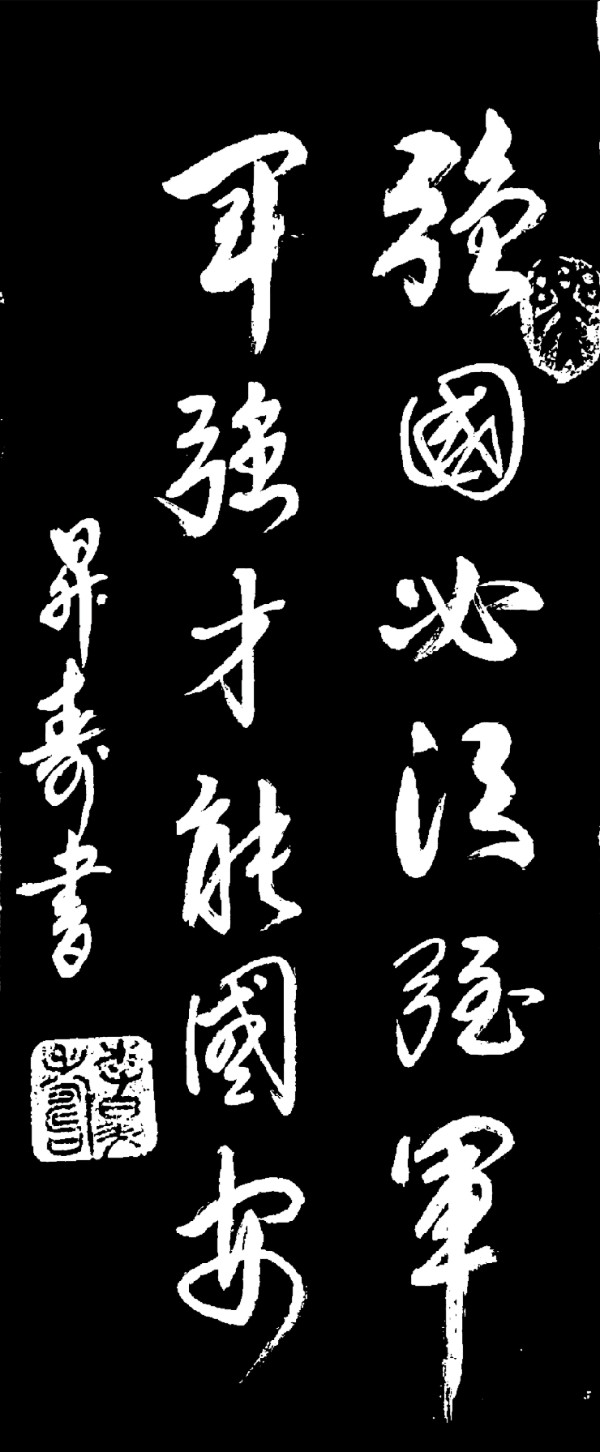 強國必須強軍
軍強才能國安
昇壽書